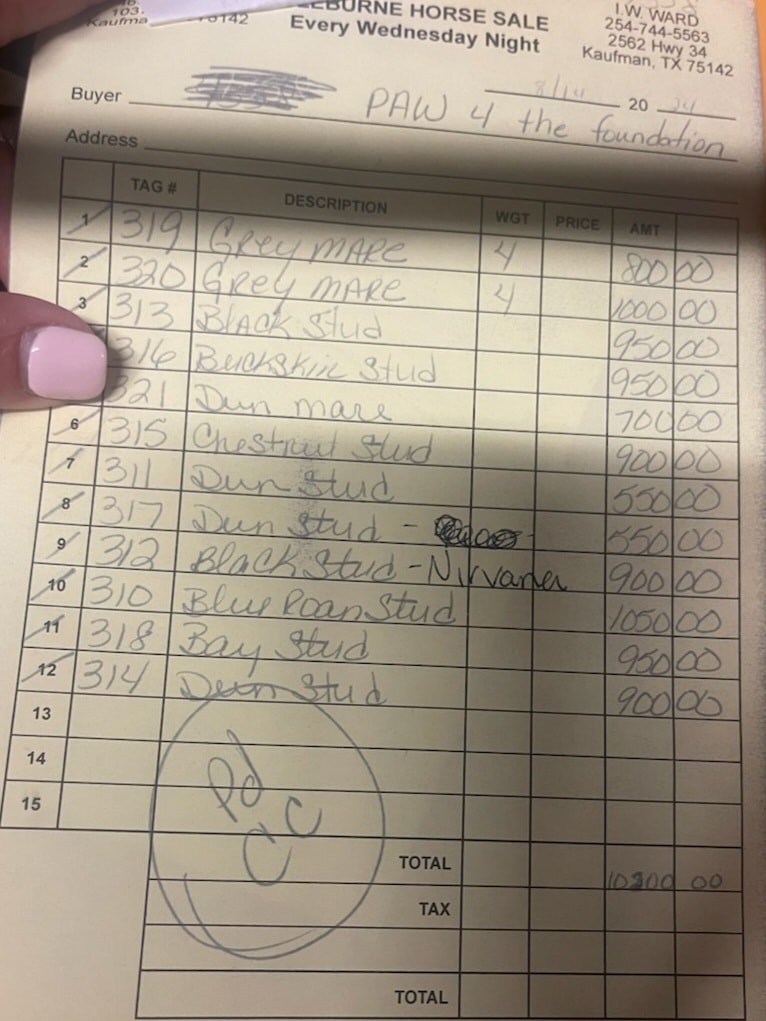 103.
Kaufma 75142
BURNE HORSE SALE
Every Wednesday Night
I.W. WARD
254-744-5563
2562 Hwy 34
Kaufman, TX 75142
8/14 20 24
Buyer PAW 4 the foundation
Address
TAG # DESCRIPTION WGT PRICE AMT
1 319 Grey mare 4 800 00
2 320 Grey mare 4 1000 00
3 313 Black Stud 950 00
316 Buckskin Stud 950 00
321 Dun mare 700 00
6 315 Chestnut Stud 900 00
7 311 Dun Stud 550 00
8 317 Dun Stud - 550 00
9 312 Black Stud - Nirvana 900 00
10 310 Blue Roan Stud 1050 00
11 318 Bay Stud 950 00
12 314 Dun Stud 900 00
13
14
15
Pd
CC
TOTAL 10200 00
TAX
TOTAL